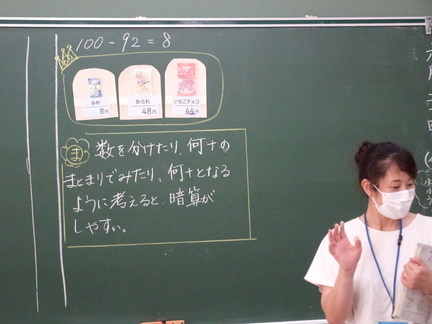 100-92=8
あめ
8円
あられ
48円
いちごチョコ
44円
ま 数を分けたり、何十の
まとまりでみたり、何十となる
ように考えると、暗算が
しやすい。